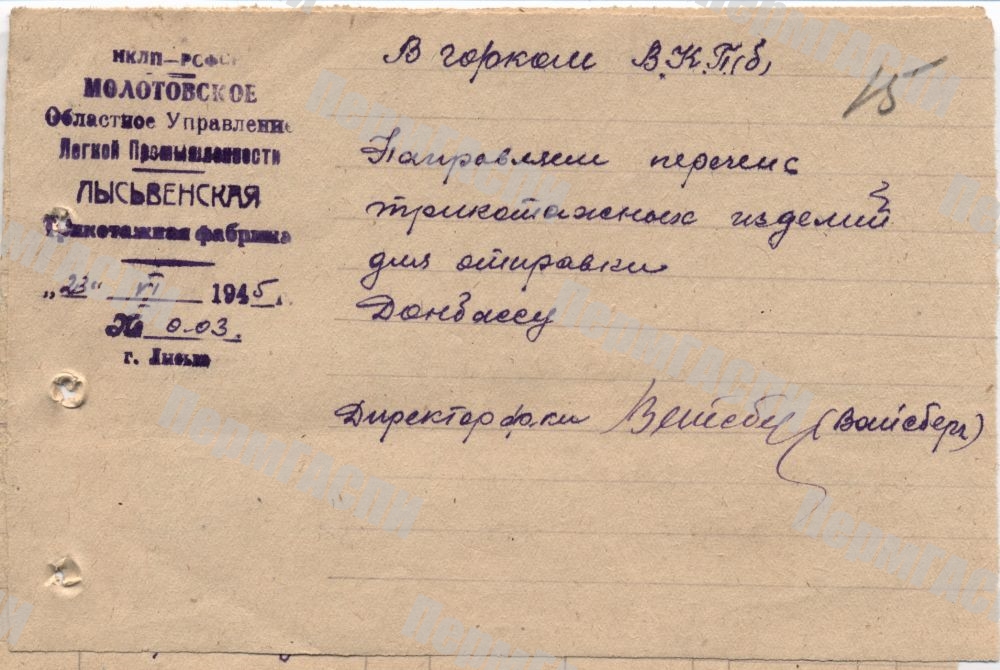 НКЛП—РСФСР
МОЛОТОВСКОЕ
Областное Управление
Легкой Промышленности
ЛЫСЬВЕНСКАЯ
Трикотажная фабрика
„23“ VI 1945 г.
№ 0-03.
г. Лысьва
В горком В.К.П.(б)
15
Направляем перечень
трикотажных изделий
для отправки
Донбассу
Директор ф-ки (Вайсберг)
ПермГАСПИ
ПермГАСПИ
ПермГАСПИ
ПермГАСПИ